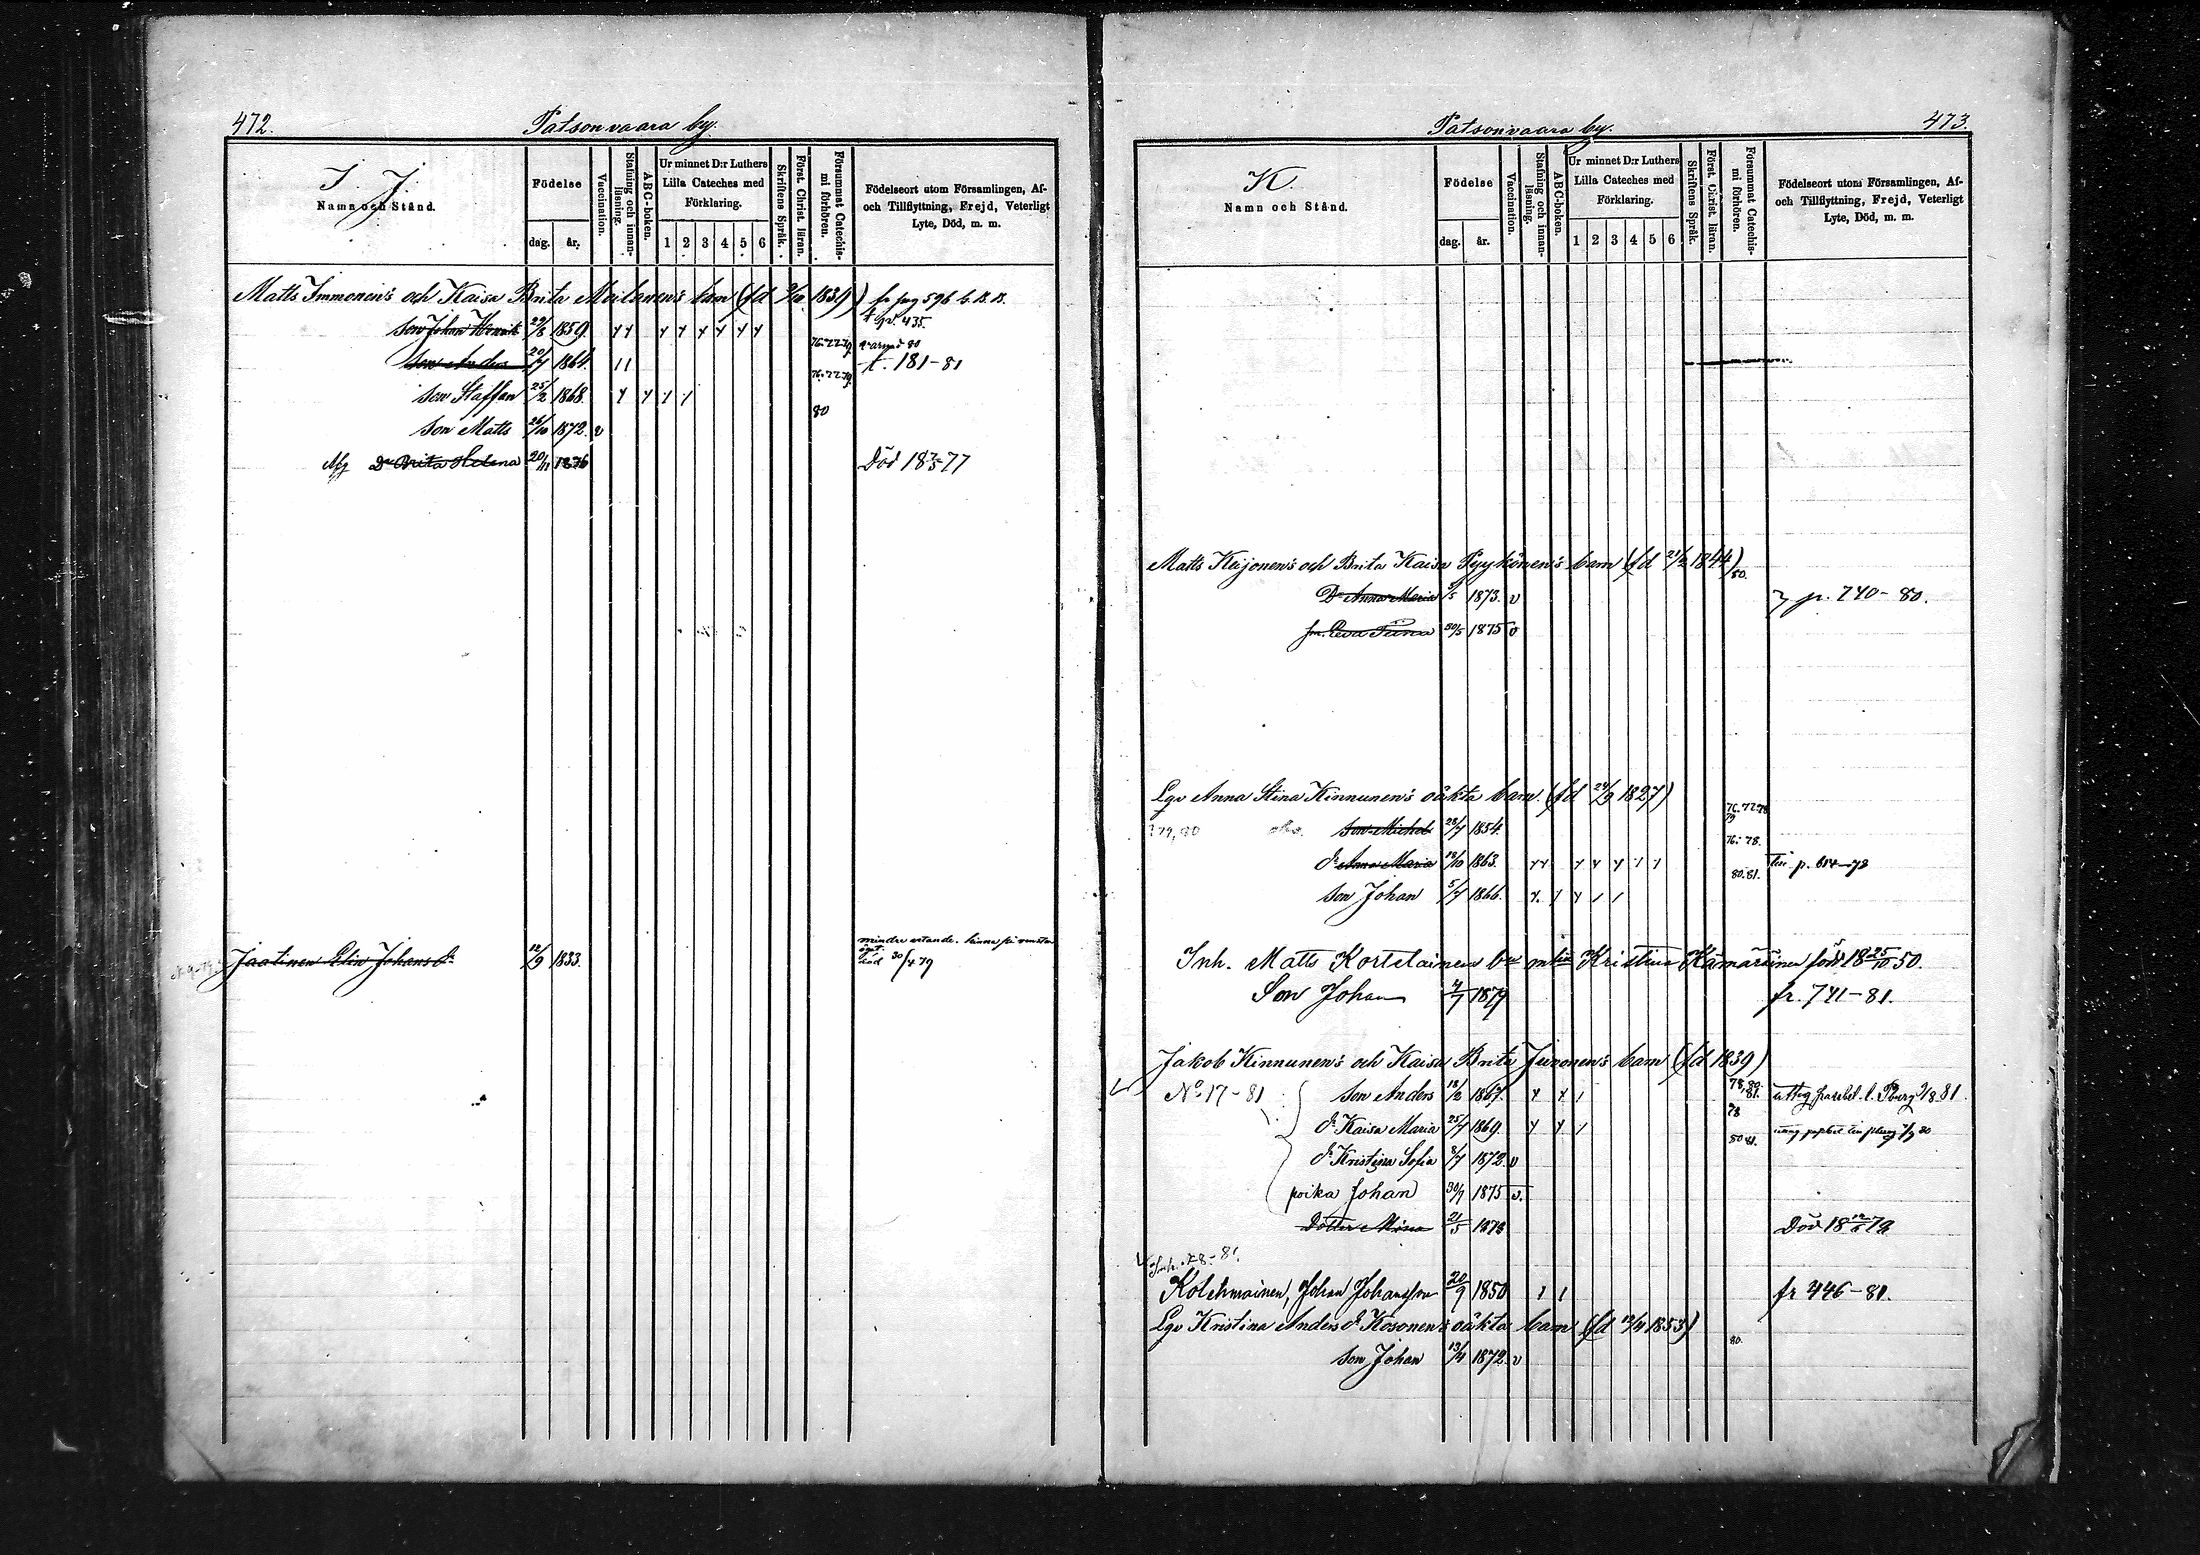 472.
Patsonvaara by.
I. J.
Namn och Stånd.
Födelse
dag. år.
Vaccination.
Stafning och innanläsning.
ABC-boken.
Ur minnet D:r Luthers Lilla Cateches med Förklaring.
1 2 3 4 5 6
Skriftens Språk.
Först. Christ. läran.
Försummat Catechismi förhören.
Födelseort utom Församlingen, Af- och Tillflyttning, Frejd, Veterligt Lyte, Död, m. m.
Matts Immonen's och Kaisa Brita Meilanen's barn (fd 1839) fr pag 596 b. B. B.
son Johan Henrik 29/8 1859. 435.
76. 77. 79.
son Anders 20/7 1864. t. 181-81
76. 77. 79.
son Staffan 25/2 1868.
80
son Matts 26/10 1872. v
D:r Brita Helena 20/11 1876 Död 18 77
Jaatinen Elin Johans d:r 12/9 1833. död 30/4 79
473.
Patsonvaara by.
K.
Namn och Stånd.
Födelse
dag. år.
Vaccination.
Stafning och innanläsning.
ABC-boken.
Ur minnet D:r Luthers Lilla Cateches med Förklaring.
1 2 3 4 5 6
Skriftens Språk.
Först. Christ. läran.
Försummat Catechismi förhören.
Födelseort utom Församlingen, Af- och Tillflyttning, Frejd, Veterligt Lyte, Död, m. m.
Matts Keijonen's och Brita Kaisa Pyykönen's barn (fd 21/2 1844)
80.
D:r Anna Maria 1873. v p. 740-80.
Eeva Stina 30/5 1875 v
Lgv Anna Stina Kinnunen's oäkta barn. (fd 24/9 1827)
76. 77. 78
79
79, 80 son Michel 28/7 1854.
76. 78.
d:r Anna Maria 18/10 1863. p. 614-78
80. 81.
son Johan 5/7 1866.
Inh. Matts Kortelainen Kristina Kämäräinen född 18 25/10 50.
Son Johan 4/7 1879 fr. 741-81.
Jakob Kinnunen's och Kaisa Brita Juvonen's barn (fd 1839)
No 17-81 son Anders 18/2 1867. 78, 80. 81.
d:r Kaisa Maria 25/7 1869. 78
80 81.
d:r Kristina Sofia 8/7 1872. v
poika Johan 30/7 1875 v.
Dotter Mina 21/5 1878 Död 18 78
Inh. 78-81.
Kolehmainen, Johan Johansson 20/9 1850 fr 446-81.
Lgv Kristina Anders d:r Kosonen's oäkta barn (fd 12/4 1853)
80.
son Johan 13/4 1872. v